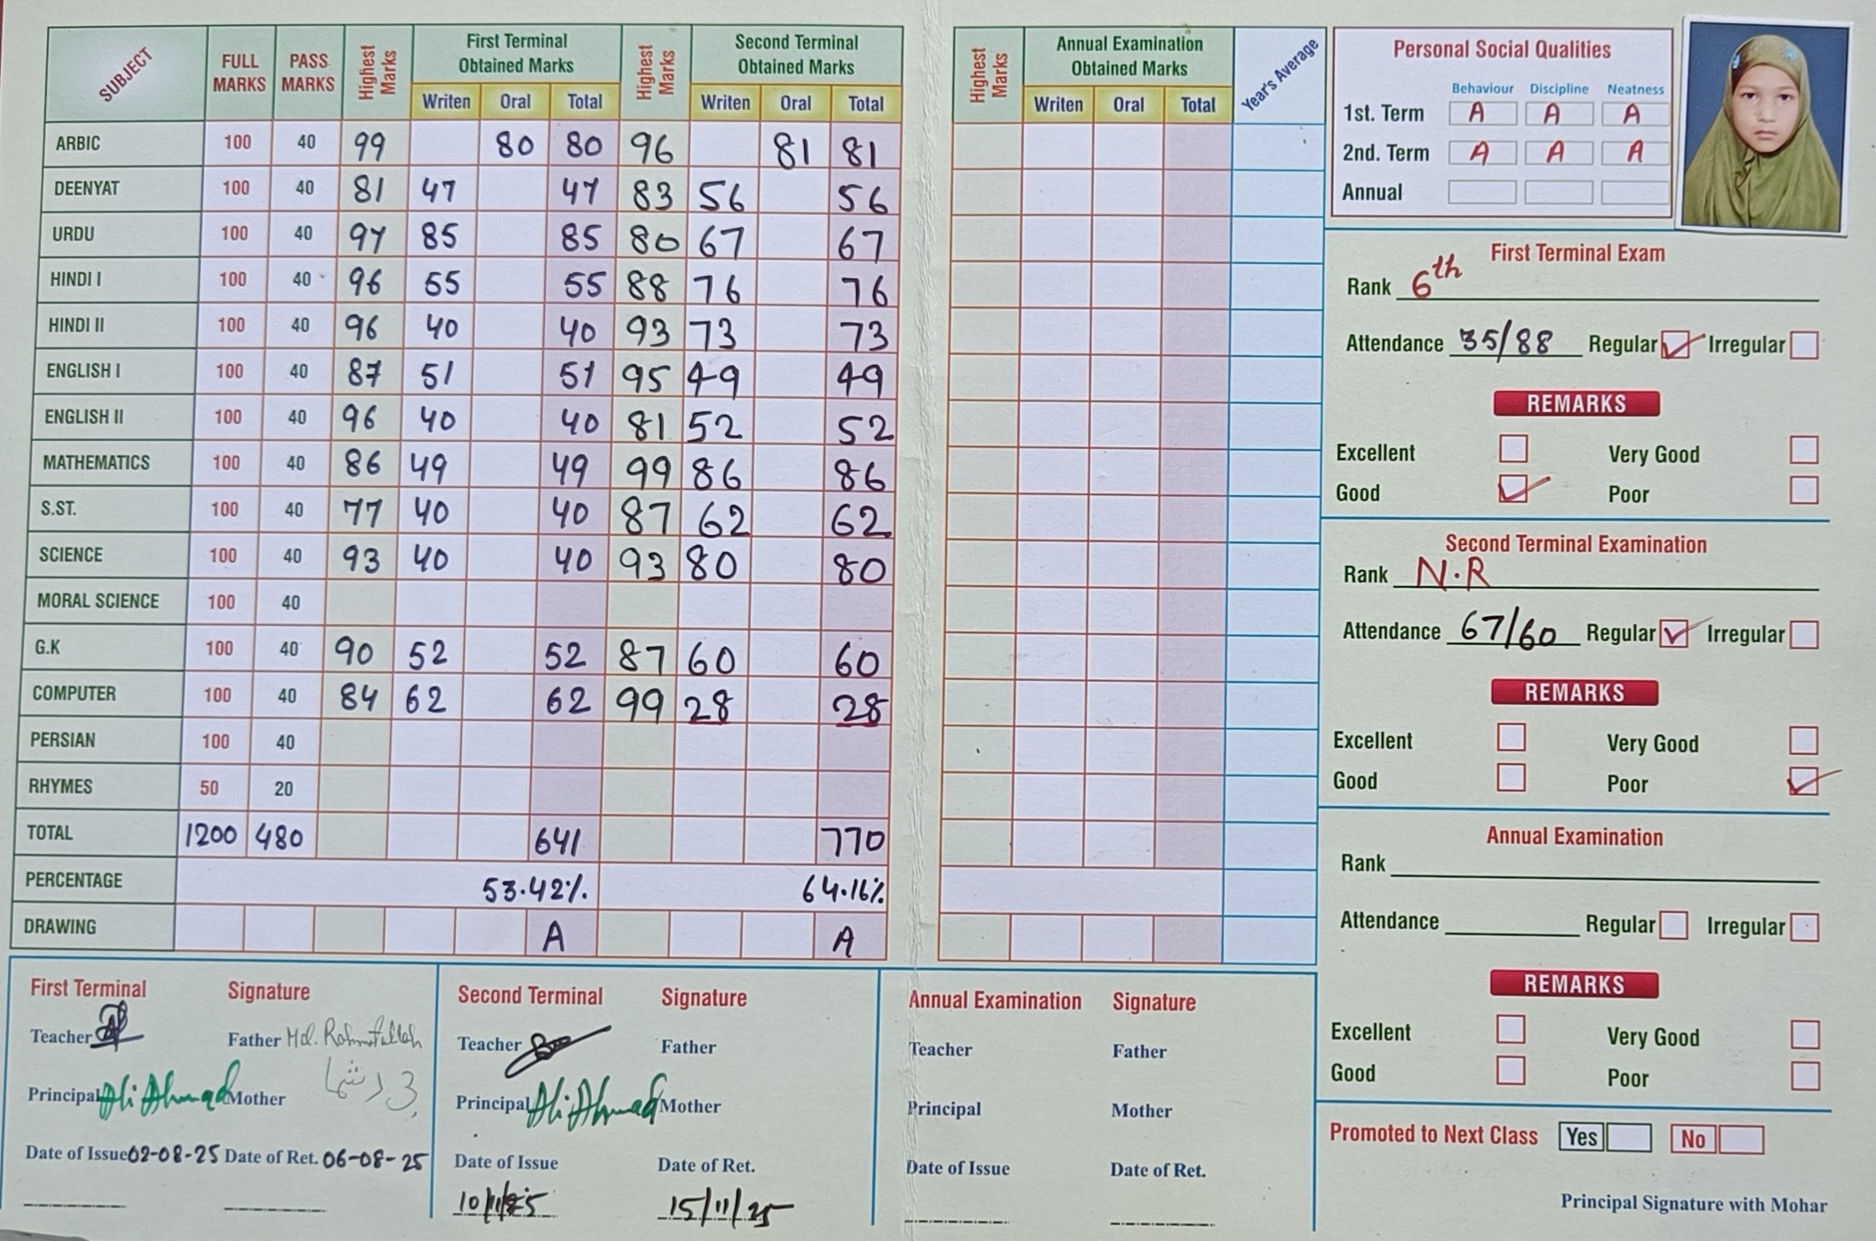 SUBJECT FULL MARKS PASS MARKS Highest Marks First Terminal Obtained Marks Writen Oral Total Highest Marks Second Terminal Obtained Marks Writen Oral Total
ARBIC 100 40 99 80 80 96 81 81
DEENYAT 100 40 81 47 47 83 56 56
URDU 100 40 97 85 85 80 67 67
HINDI I 100 40 96 55 55 88 76 76
HINDI II 100 40 96 40 40 93 73 73
ENGLISH I 100 40 87 51 51 95 49 49
ENGLISH II 100 40 96 40 40 81 52 52
MATHEMATICS 100 40 86 49 49 99 86 86
S.ST. 100 40 77 40 40 87 62 62
SCIENCE 100 40 93 40 40 93 80 80
MORAL SCIENCE 100 40
G.K 100 40 90 52 52 87 60 60
COMPUTER 100 40 84 62 62 99 28 28
PERSIAN 100 40
RHYMES 50 20
TOTAL 1200 480 641 770
PERCENTAGE 53.42% 64.16%
DRAWING A A
Highest Marks Annual Examination Obtained Marks Writen Oral Total Year's Average
Personal Social Qualities
Behaviour Discipline Neatness
1st. Term A A A
2nd. Term A A A
Annual
First Terminal Exam
Rank 6th
Attendance 35/88 Regular Irregular
REMARKS
Excellent Very Good
Good Poor
Second Terminal Examination
Rank N.R
Attendance 67/60 Regular Irregular
REMARKS
Excellent Very Good
Good Poor
Annual Examination
Rank
Attendance Regular Irregular
REMARKS
Excellent Very Good
Good Poor
Promoted to Next Class Yes No
Principal Signature with Mohar
First Terminal Signature
Teacher Father Md. Rahmatullah
Principal Ali Ahmad Mother
Date of Issue 02-08-25 Date of Ret. 06-08-25
Second Terminal Signature
Teacher Father
Principal Ali Ahmad Mother
Date of Issue Date of Ret.
15/11/25
Annual Examination Signature
Teacher Father
Principal Mother
Date of Issue Date of Ret.